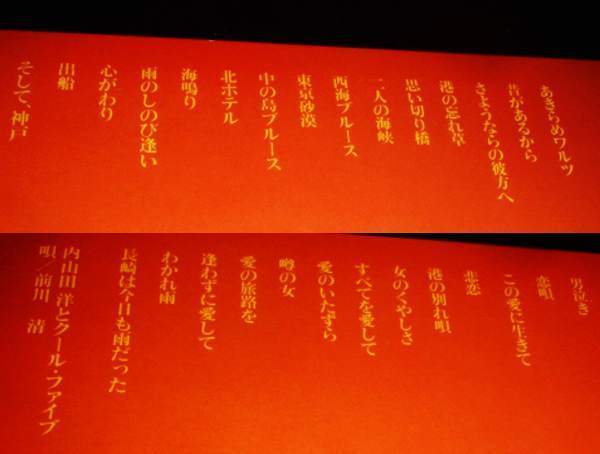 あきらめワルツ
昔があるから
さようならの彼方へ
港の忘れ草
思い切り橋
二人の海峡
西海ブルース
東京砂漠
中の島ブルース
北ホテル
海鳴り
雨のしのび逢い
心がわり
出船
そして、神戸
男泣き
恋唄
この愛に生きて
悲恋
港の別れ唄
女のくやしさ
すべてを愛して
愛のいたずら
噂の女
愛の旅路を
逢わずに愛して
わかれ雨
長崎は今日も雨だった
内山田 洋とクール・ファイブ
唄/前川 清